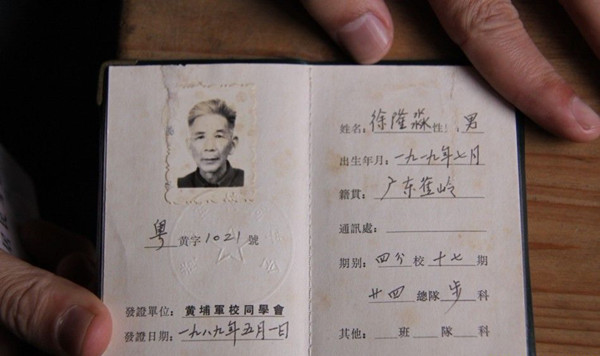 粤黄字1021號
發證單位：黄埔軍校同學會
發證日期：一九八九年五月一日
姓名：徐隆淼性：男
出生年月：一九一九年七月
籍貫：广东蕉岭
通訊處：
期别：四分校十七期
廿四總隊步科
其他：班隊科